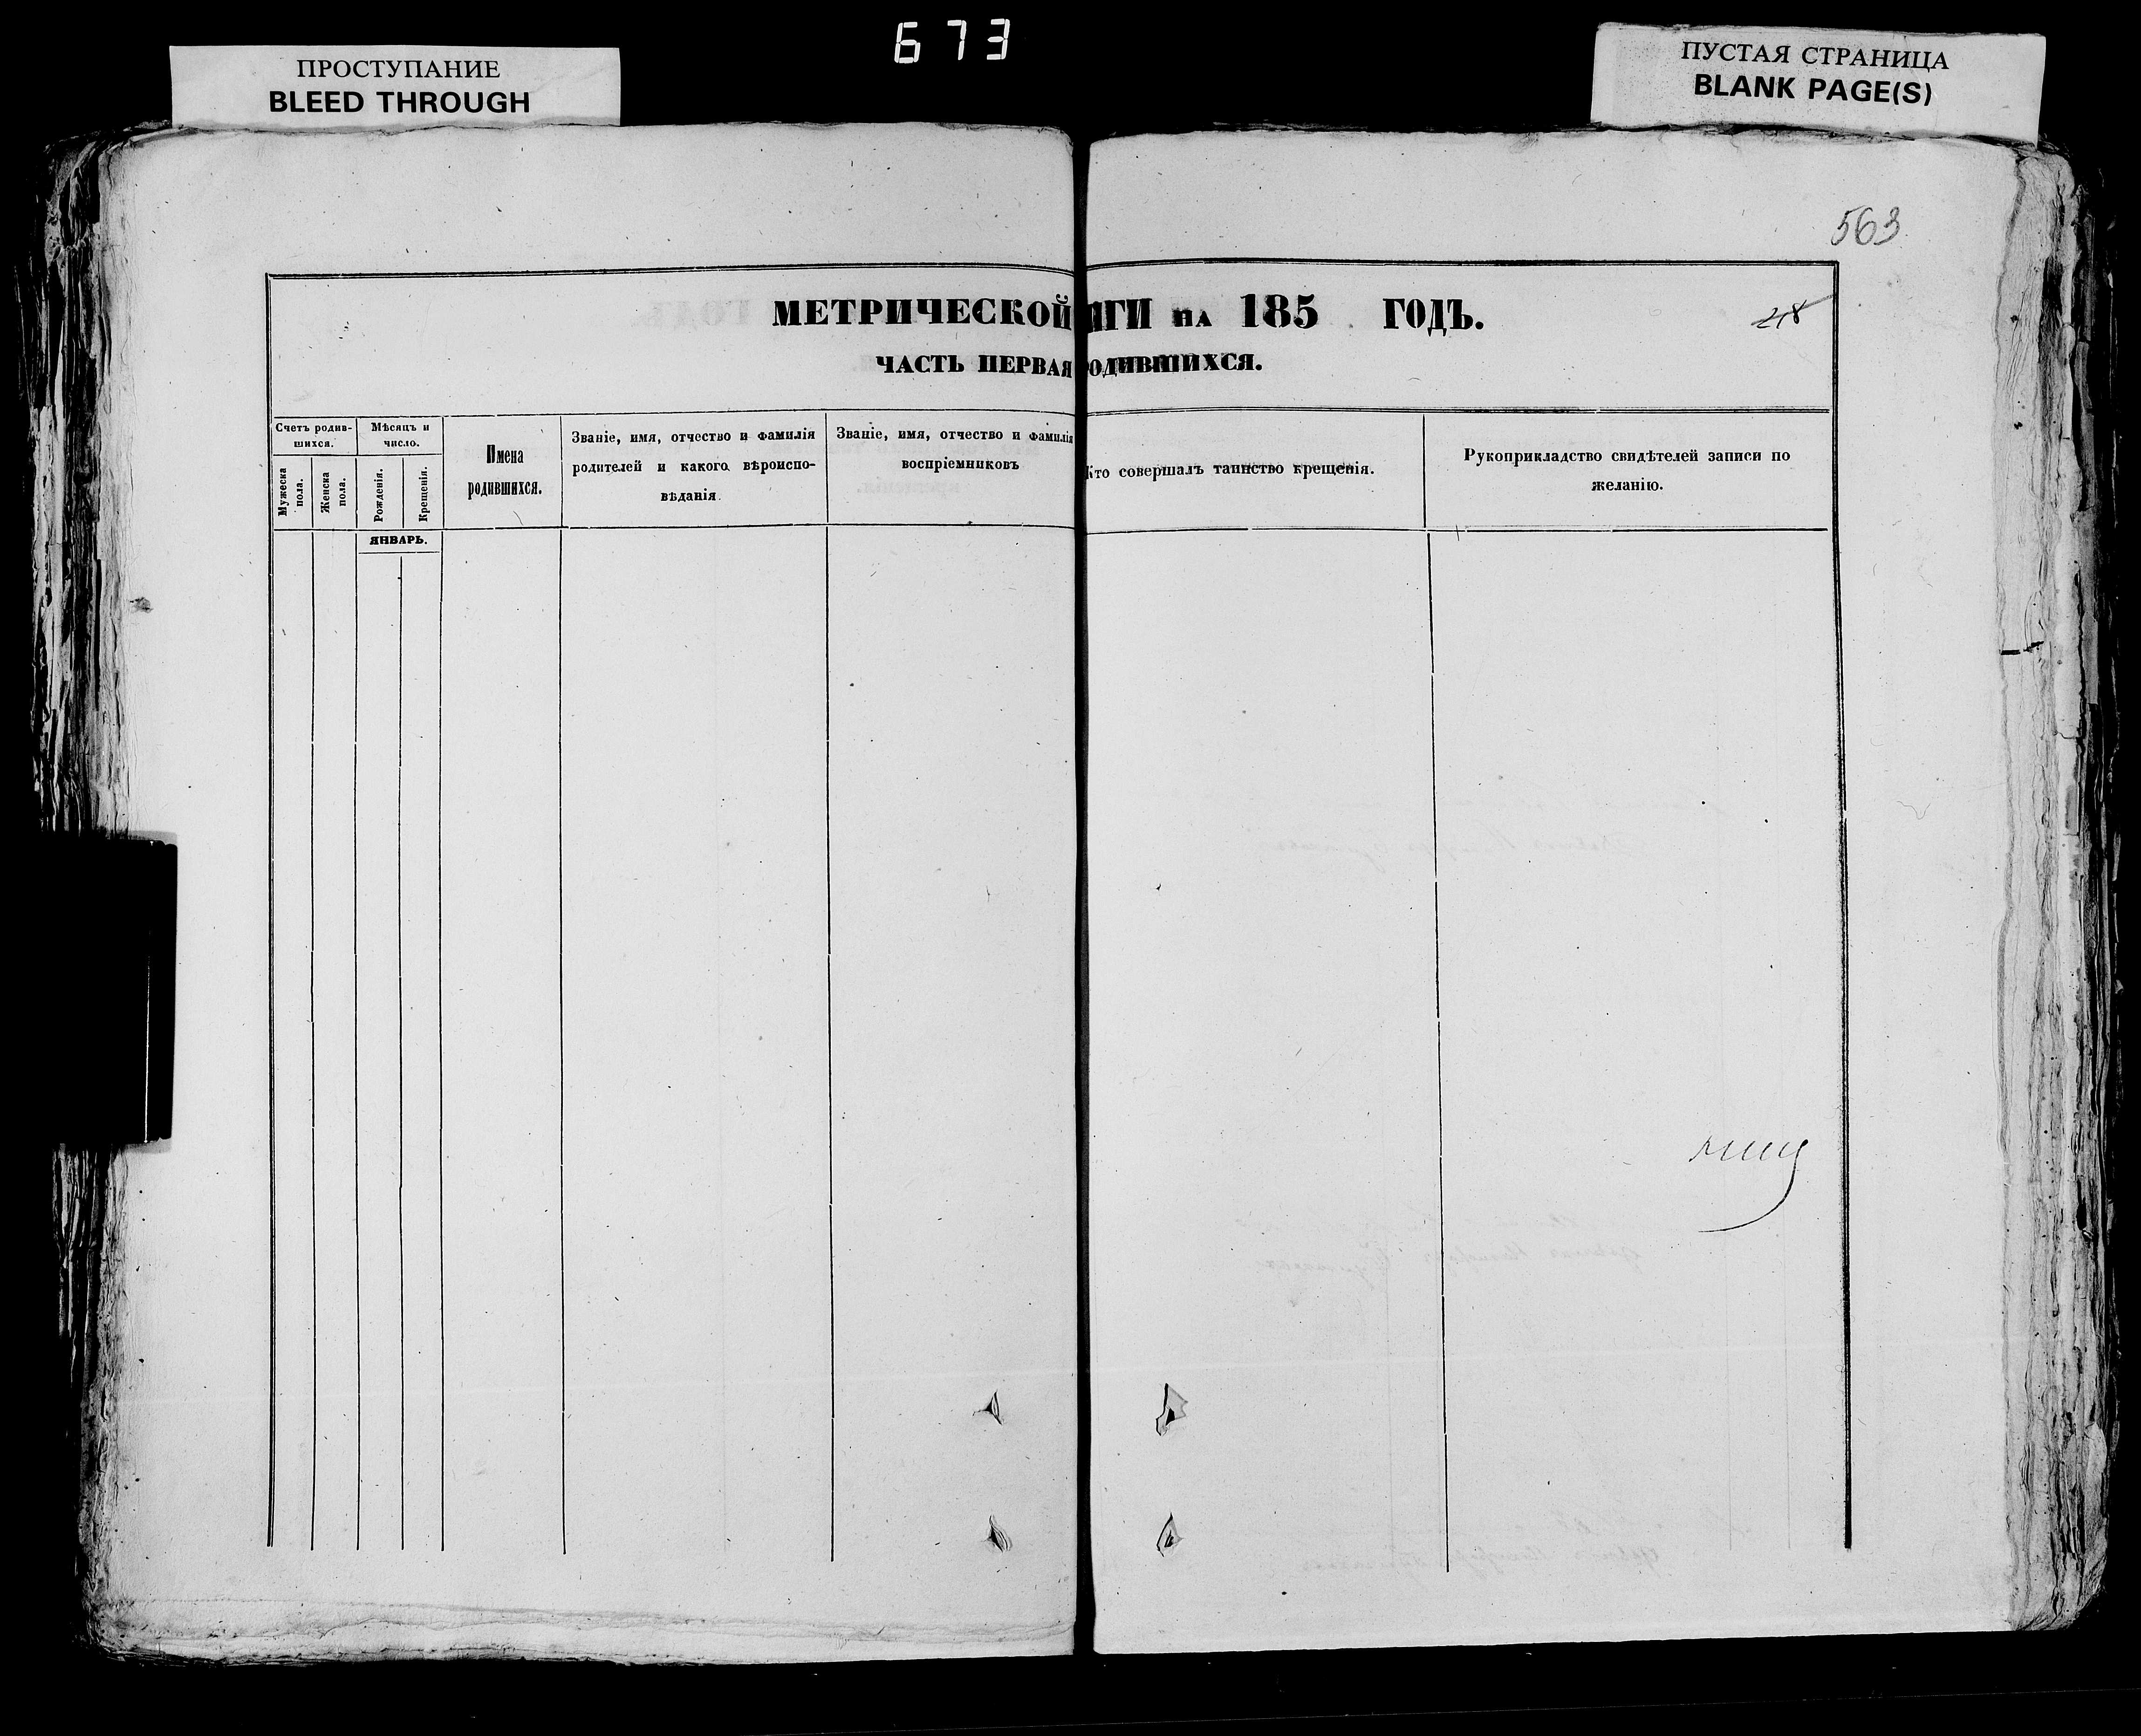 673
ПРОСТУПАНИЕ
BLEED THROUGH
ПУСТАЯ СТРАНИЦА
BLANK PAGE(S)
563
МЕТРИЧЕСКОЙ
ИГИ НА 185 ГОДЪ.
ЧАСТЬ ПЕРВАЯ
РОДИВШИХСЯ.
Счетъ родив-
шихся.
Мужеска
пола.
Женска
пола.
Мѣсяцъ и
число.
Рожденія.
Крещенія.
Имена
родившихся.
Званіе, имя, отчество и фамилія
родителей и какого вѣроиспо-
вѣданія.
Званіе, имя, отчество и фамилія
воспріемниковъ
Кто совершалъ таинство крещенія.
Рукоприкладство свидѣтелей записи по
желанію.
ЯНВАРЬ.